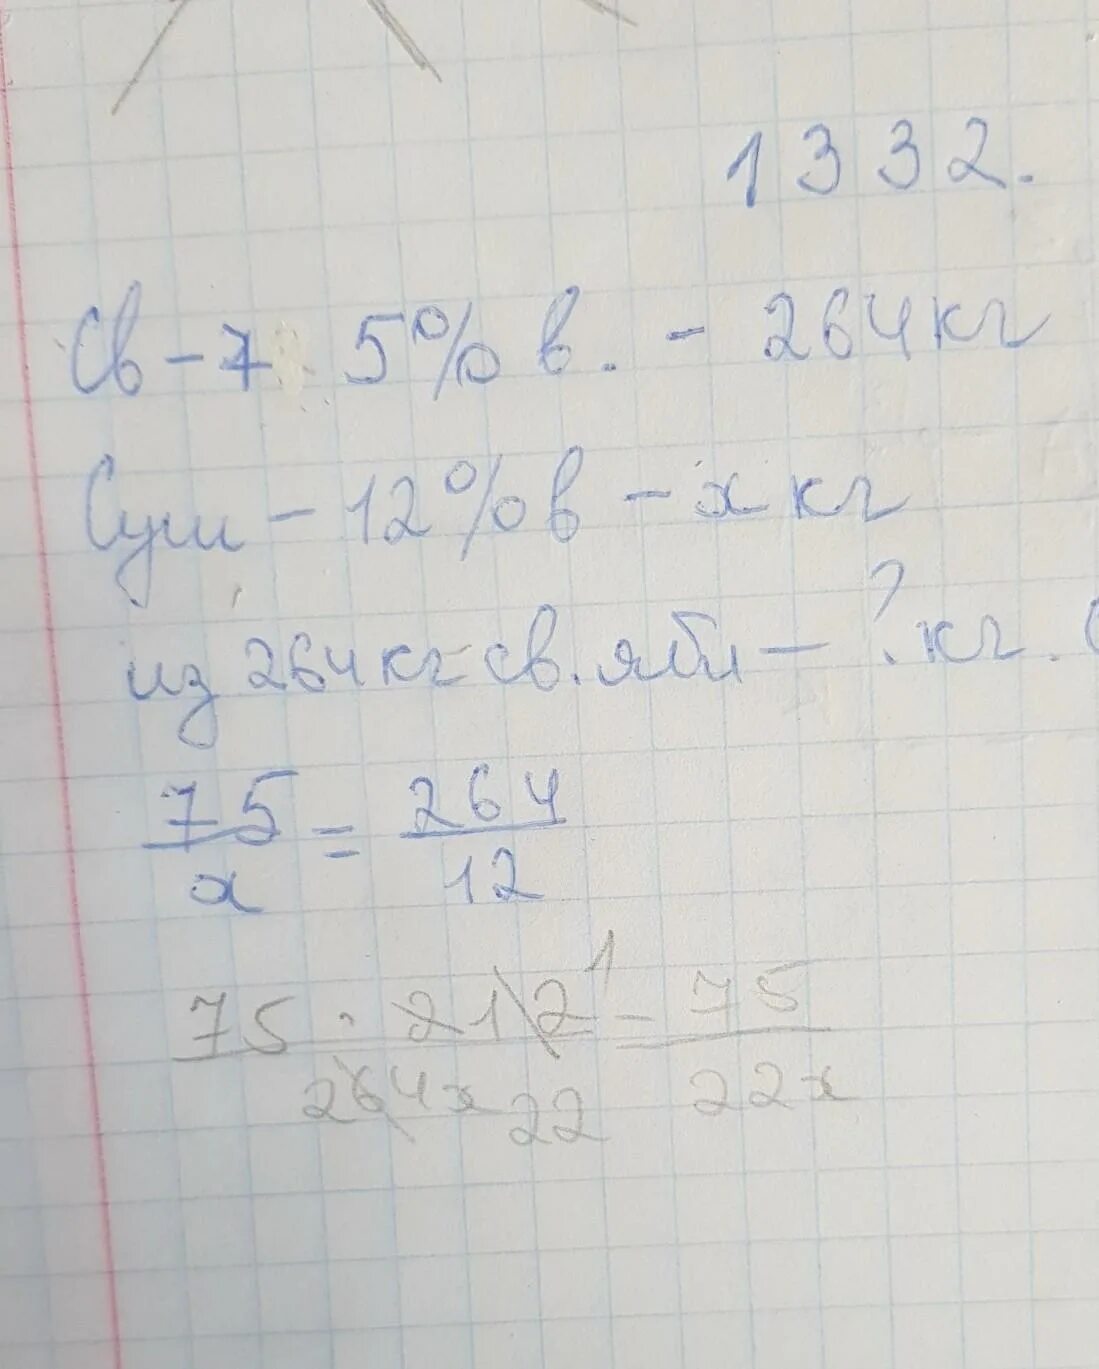 1332.
Св - 7 5% в. - 264 кг
Суш - 12% в - х кг
из 264 кг св. ябл - ? кг.
75/х = 264/12
75 · 212 1 / 264х 22 = 75 / 22х